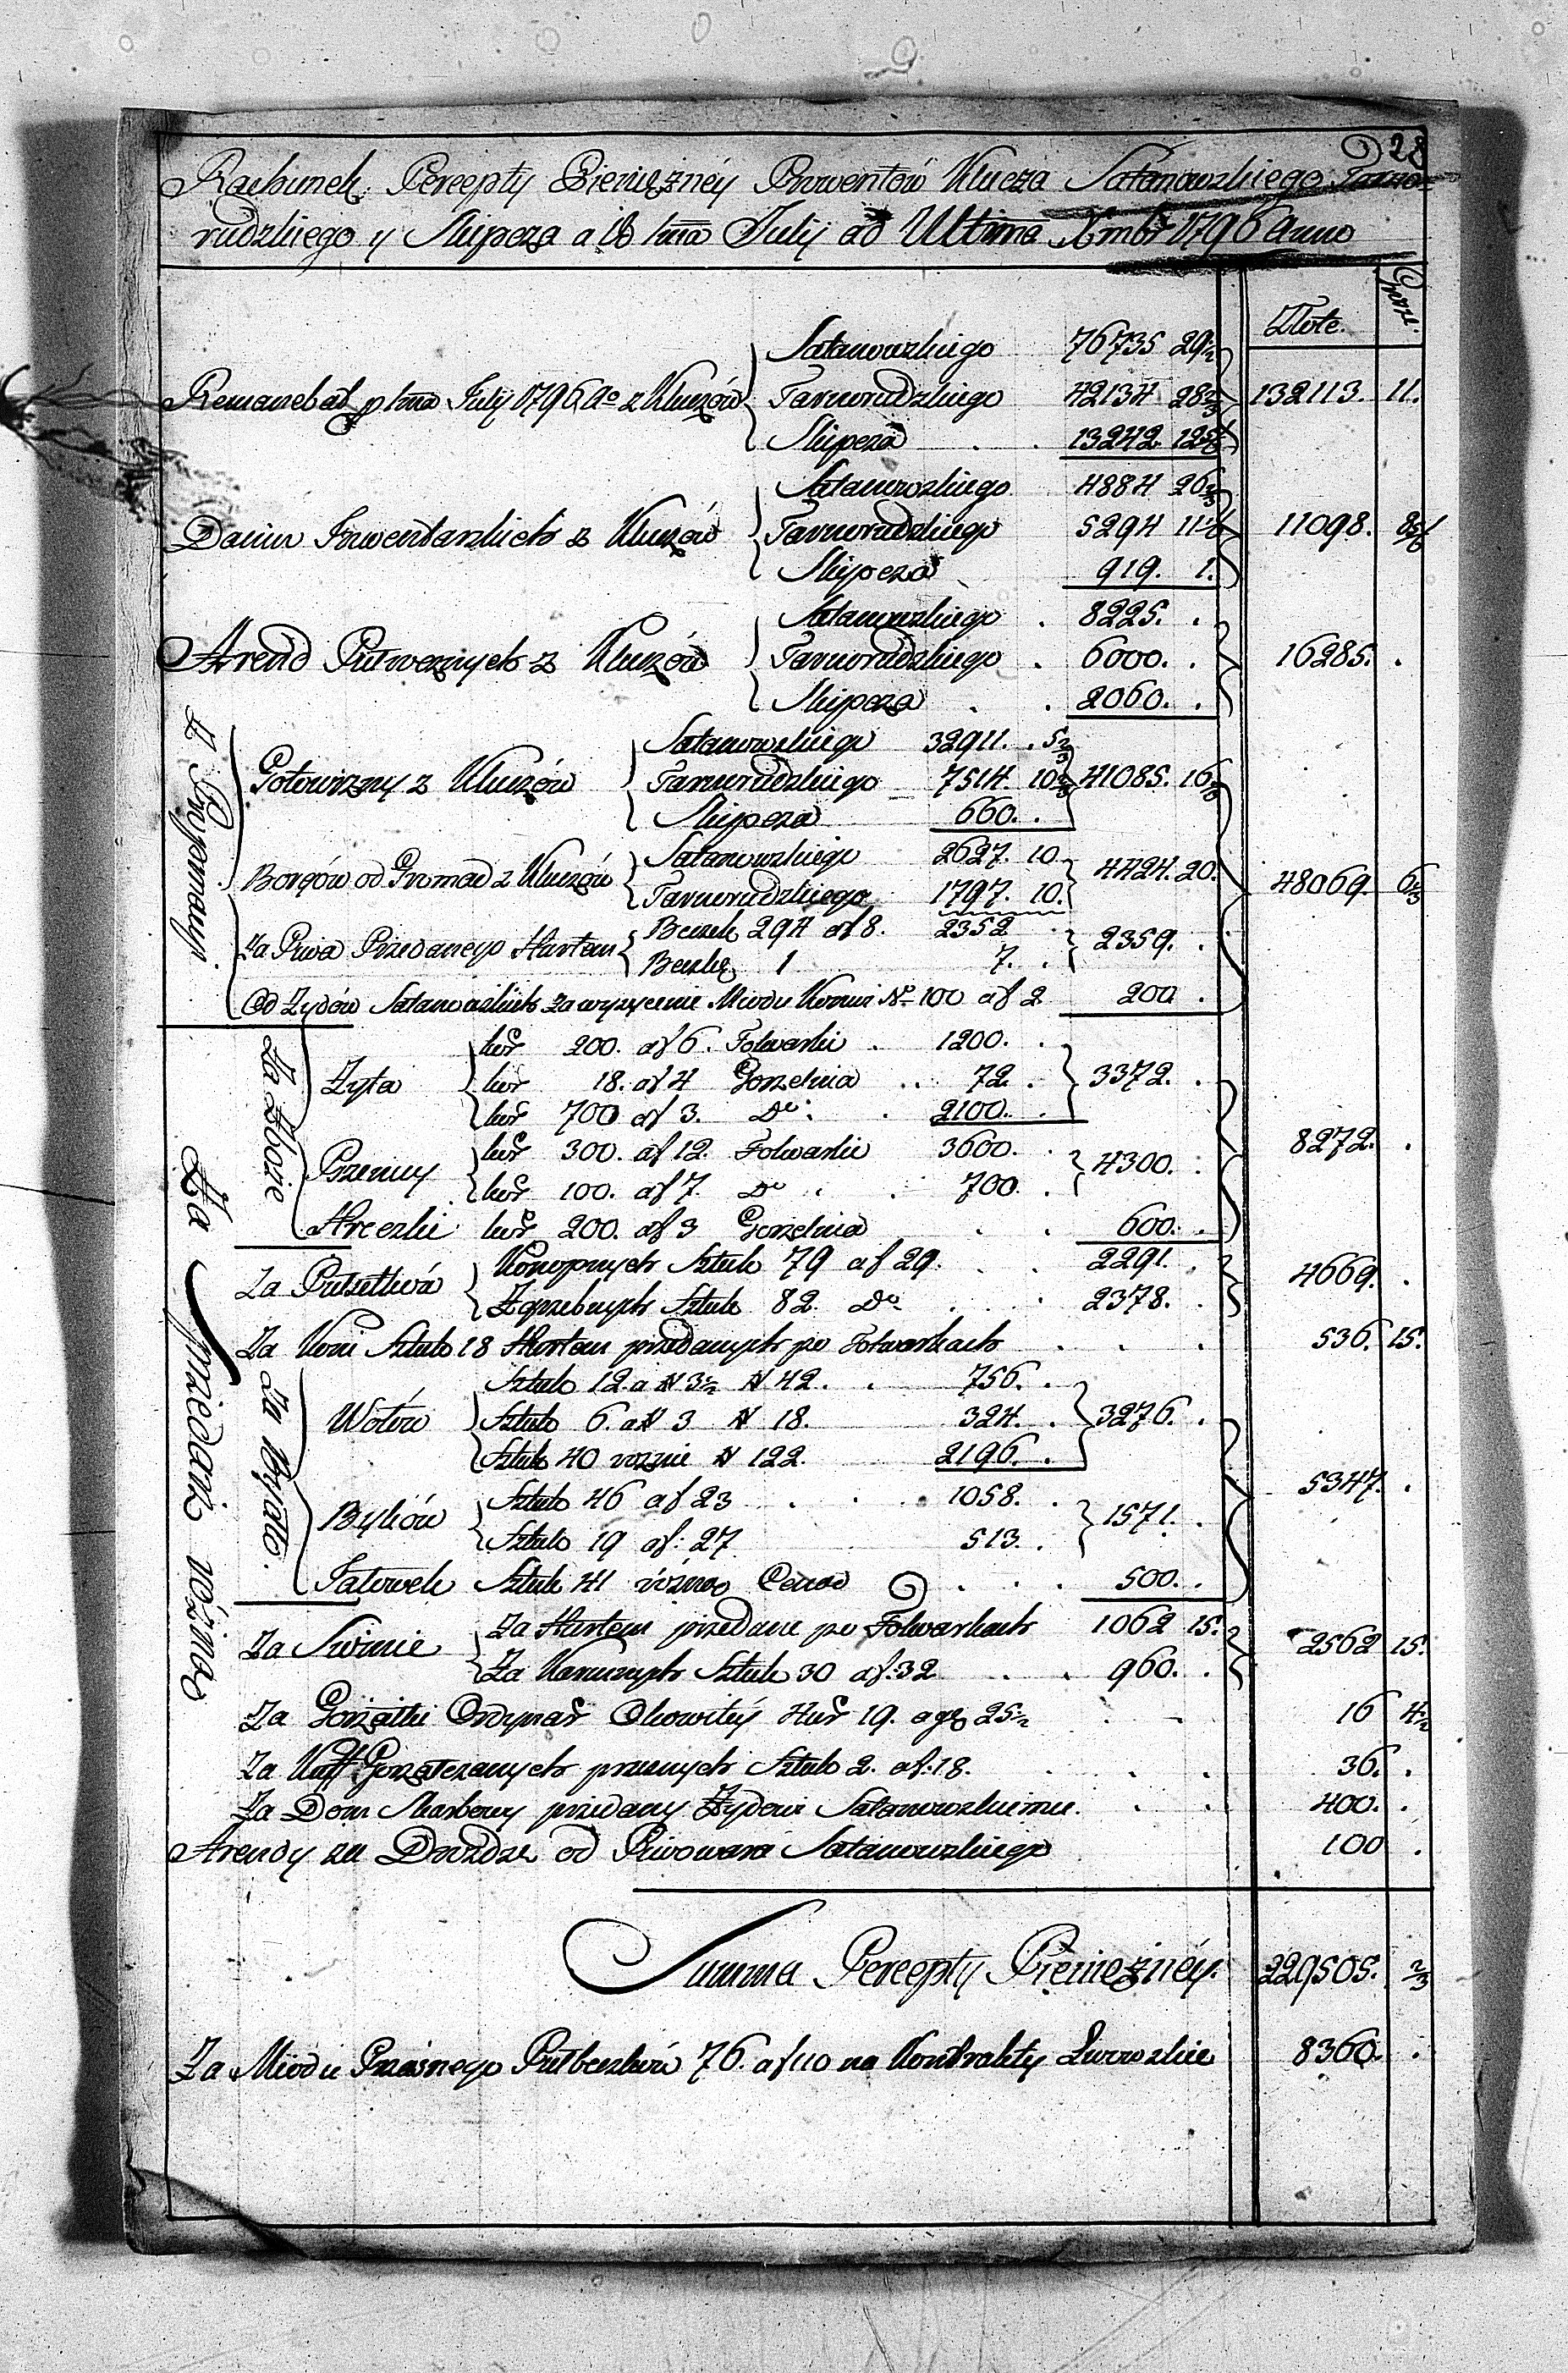 28
Rachunek Percepty Pieniężnéy Prowentów Klucza Satanowskiego Tarno-
rudzkiego y Kupcza a 1ma Julij ad Ultima Xmbr 1796 Anno
Złote. Grosze.
Satanowskiego 76735 29½
Remanebat p 1ma Julij 1796 Ao z Kluczów Tarnorudzkiego 42134 28⅔ 132113. 11.
13242. 12⅚
Satanowskiego 4884 26⅔
Danin Inwentarskich z Kluczów Tarnorudzkiego 5294 11⅙ 11098. 8⅚
919. 1.
Satanowskiego . 8225. .
Arend Putwocznych z Kluczów Tarnorudzkiego . 6000. . 16285. .
. . 2060. .
Z Propinacyi
Satanowskiego 32911. . 5⅔
Gotowizny z Kluczów Tarnorudzkiego 7514. 10⅔ 41085. 16⅔
660. .
Satanowskiego 2627. 10.
Borgów od Gromad z Kluczów 4424. 20. 48069 6⅔
Tarnorudzkiego 1797. 10.
Beczek 294 af 8. 2352 .
Za Piwa Przedanego Hurtem 2359. .
Beczkę 1 7. .
Od Żydów Satanowskich za wyszycenie Miodu Konwi No 100 af 2 200 .
Za Sprzedaż różną
Za Zboże
kor 200. af 6. Folwarki . 1200. .
Żyta kor 18. af 4 Gorzelnia . . 72. . 3372. .
kor 700 af 3. Do . 2100. .
8272. .
kor 300. af 12. Folwarki 3600. .
Pszenicy 4300. .
kor 100. af 7. Do . . 700. .
Hreczki kor 200. af 3 Gorzelnia . . 600. .
Konopnych Sztuk 79 af 29. . . 2291. .
Za Pułsetków 4669. .
Zgrzebnych Sztuk 82. Do . . 2378. .
Za Koni Sztuk 18 Hurtem przedanych po Folwarkach . . . 536. 15.
Za Bydło.
Sztuk 12. a # 3½ # 42. . 756. .
Wołów Sztuk 6. a # 3 # 18. 324. . 3276. .
Sztuk 40 różnie # 122. 2196. .
5347. .
Sztuk 46 af 23 . . . 1058. .
Byków 1571. .
Sztuk 19 af: 27 513. .
Jałowek Sztuk 41 różną Ceną . . . 500. .
Za Hurtem przedane po Folwarkach 1062 15.
Za Swinie 2562 15.
Za Karmnych Sztuk 30 af: 32 . . 960. .
Za Gorzałki Ordynar Okowitéy Kwr 19. a gr 25½ . . 16 4½
Za Kuff Gorzałczanych próznych Sztuk 2. af: 18. . . . 36. .
Za Dom Skarbowy przedany Żydowi Satanowskiemu. . . 400. .
Arendy za Drożdże od Piwowara Satanowskiego 100 .
Summa Percepty Pieniężnéy. 229505. ⅔
Za Miodu Praśnego Pułbeczków 76. af 110 na Kontrakty Lwowskie 8360. .